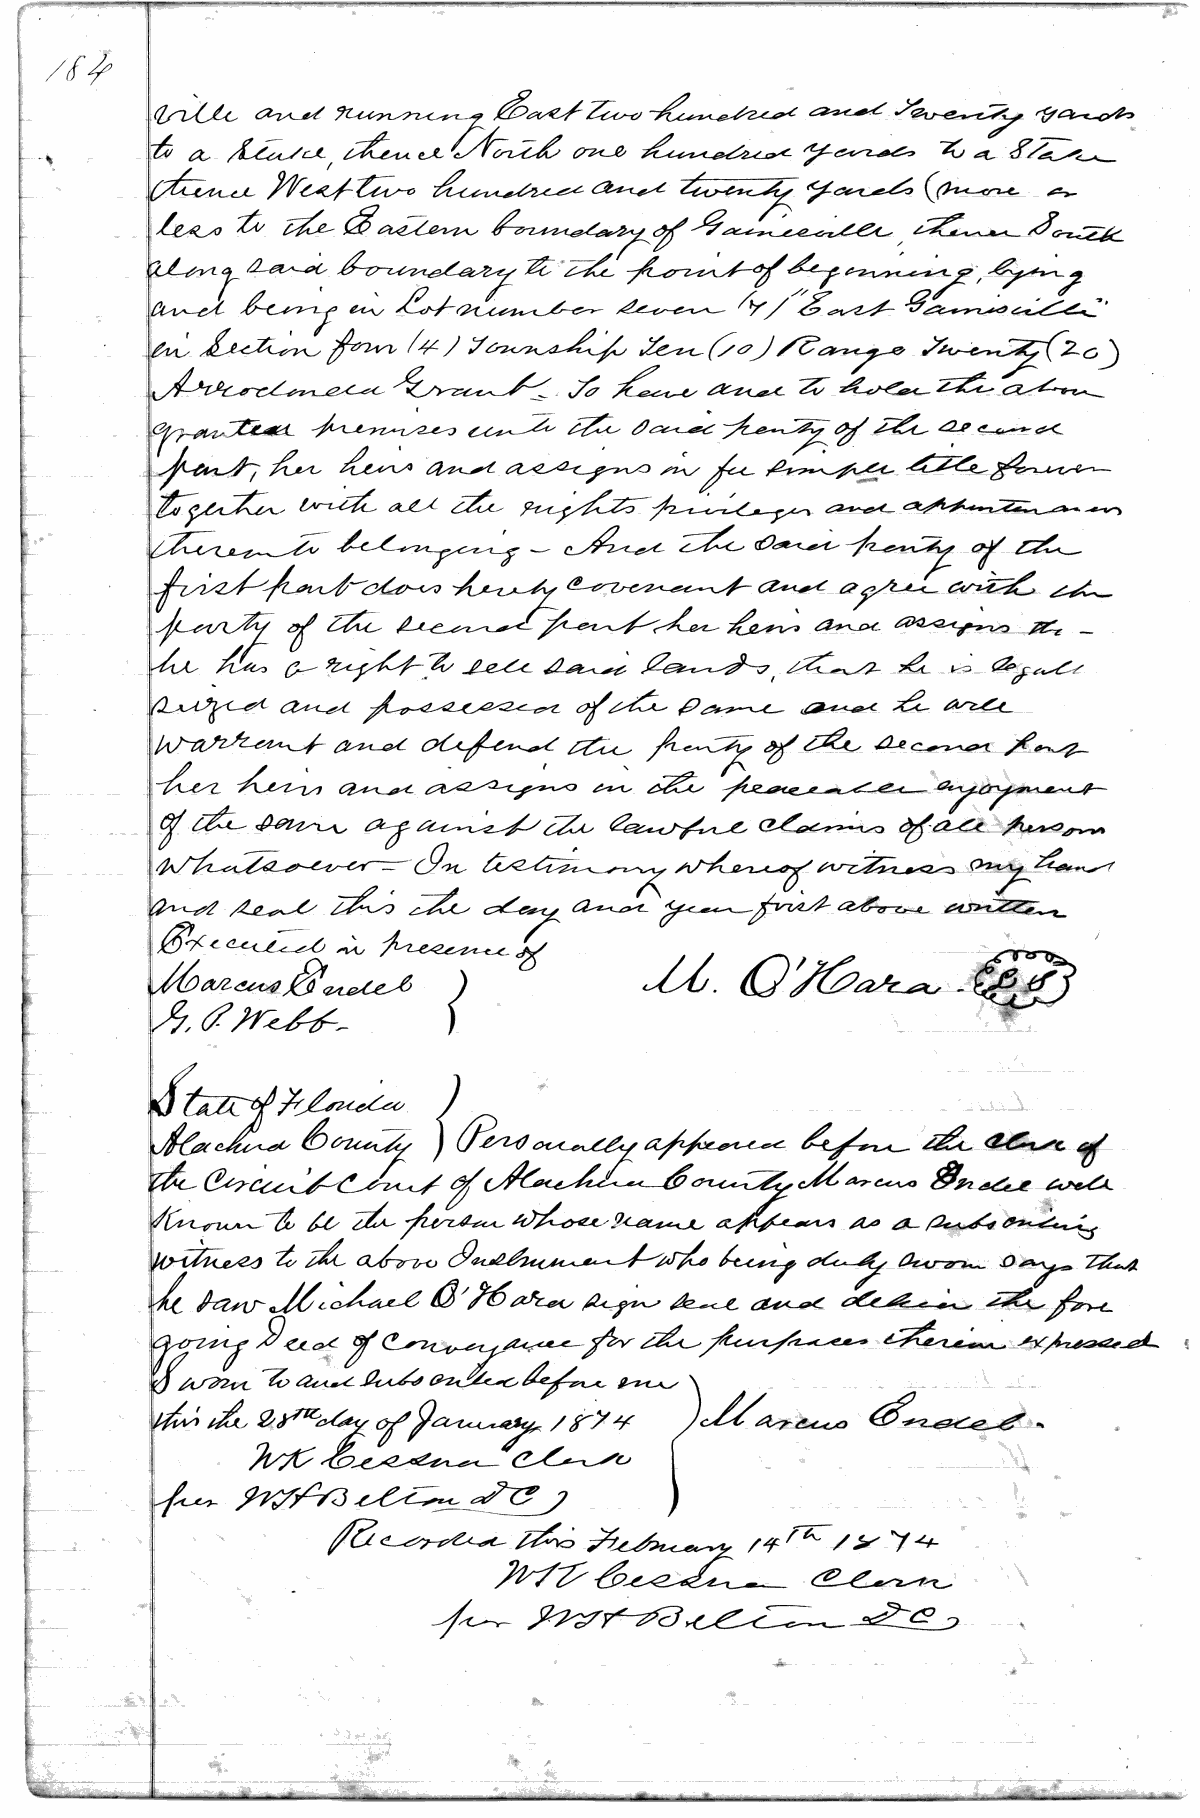 184
ville and running East two hundred and Twenty yards
to a Stake, thence North one hundred yards to a Stake
thence West two hundred and twenty yards (more or
less to the Eastern boundary of Gainesville, thence South
along said boundary to the point of beginning, lying
and being in Lot number seven (7) "East Gainisville"
in Section four (4) Township Ten (10) Range Twenty (20)
Arredonda Grant - To have and to hold the above
granted premises unto the said party of the second
part, her heirs and assigns in fee simple title forever
together with all the rights privileges and appurtenances
thereunto belonging - And the said party of the
first part does hereby covenant and agree with the
party of the second part her heirs and assigns th-
he has a right to sell said lands, that he is legall
seized and possessed of the same and he will
warrant and defend the party of the second part
her heirs and assigns in the peaceable enjoyment
of the same against the lawful claims of all persons
whatsoever - In testimony whereof witness my hand
and seal this the day and year first above written
Executed in presence of
Marcus Endel } M. O'Hara
G. P. Webb -
State of Florida
Alachua County } Personally appeared before the Clerk of
the Circuit Court of Alachua County Marcus Endel well
Known to be the person whose name appears as a subscribing
witness to the above Instrument who being duly sworn says that
he saw Michael O'Hara sign seal and deliver the fore
going Deed of Conveyance for the purposes therein expressed
Sworn to and subscribed before me
this the 28th day of January 1874 } Marcus Endel -
WK Cessna Clerk
per WH Belton DC
Recorded this February 14th 1874
WK Cessna Clerk
per WH Belton DC